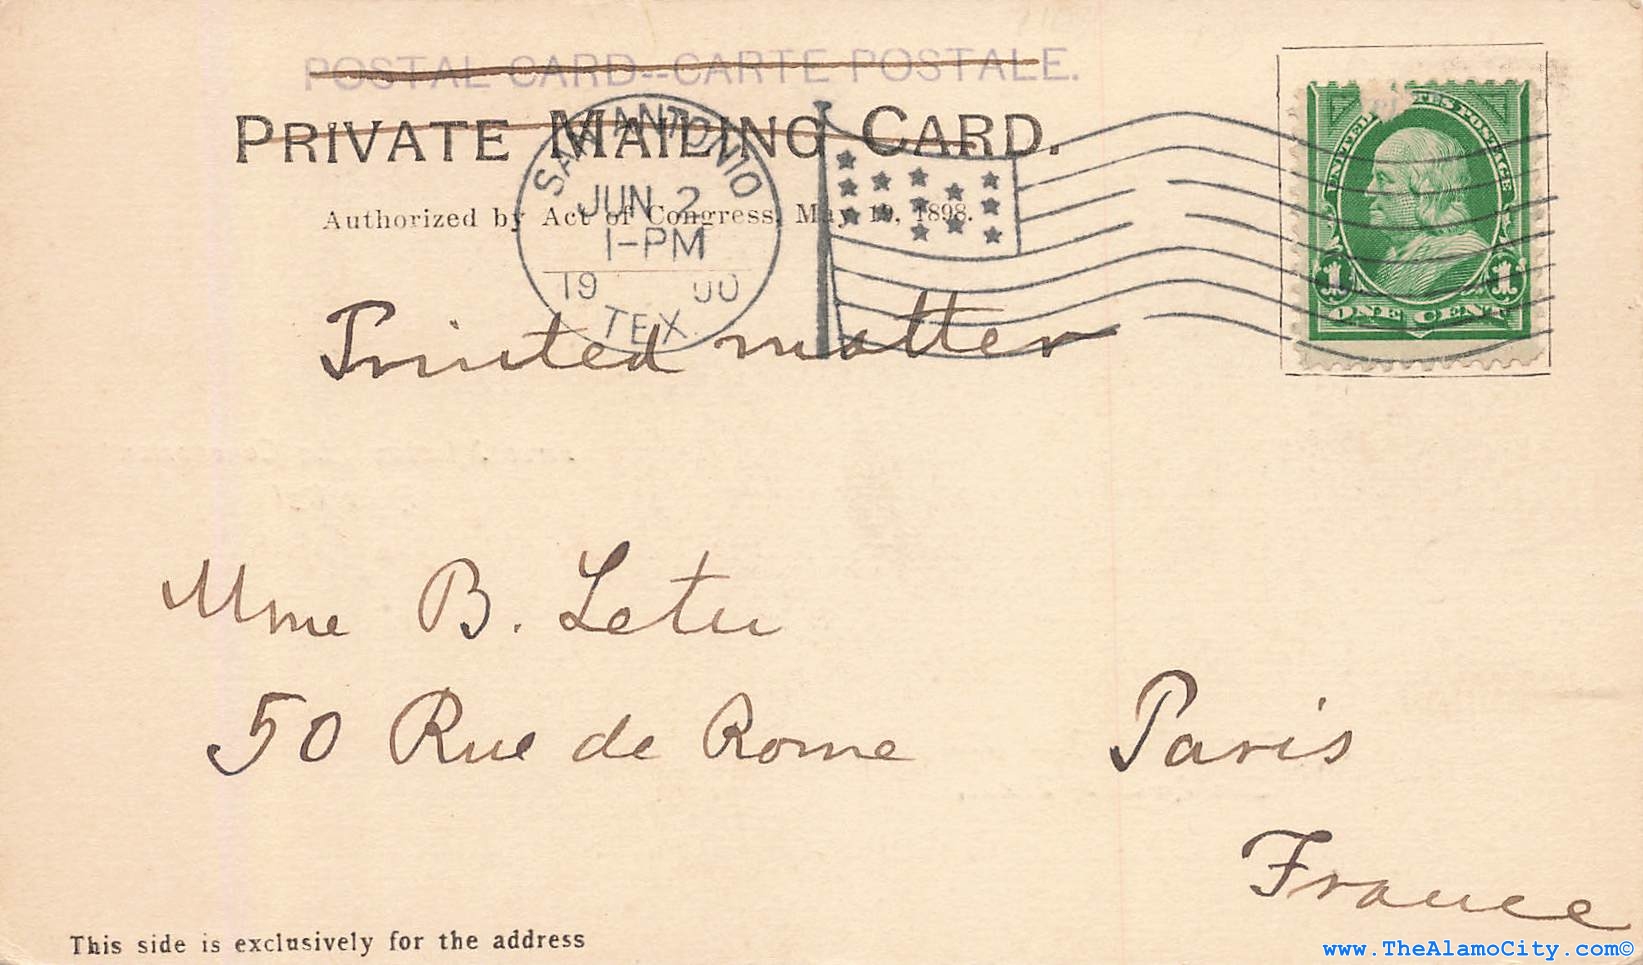 POSTAL CARD--CARTE POSTALE.
PRIVATE MAILING CARD.
Authorized by Act of Congress, May 19, 1898.
SAN ANTONIO
JUN 2
1-PM
1900
TEX.
UNITED STATES POSTAGE
1 1
ONE CENT
Printed matter
Mme B. Letu
50 Rue de Rome Paris
France
This side is exclusively for the address
www.TheAlamoCity.com©